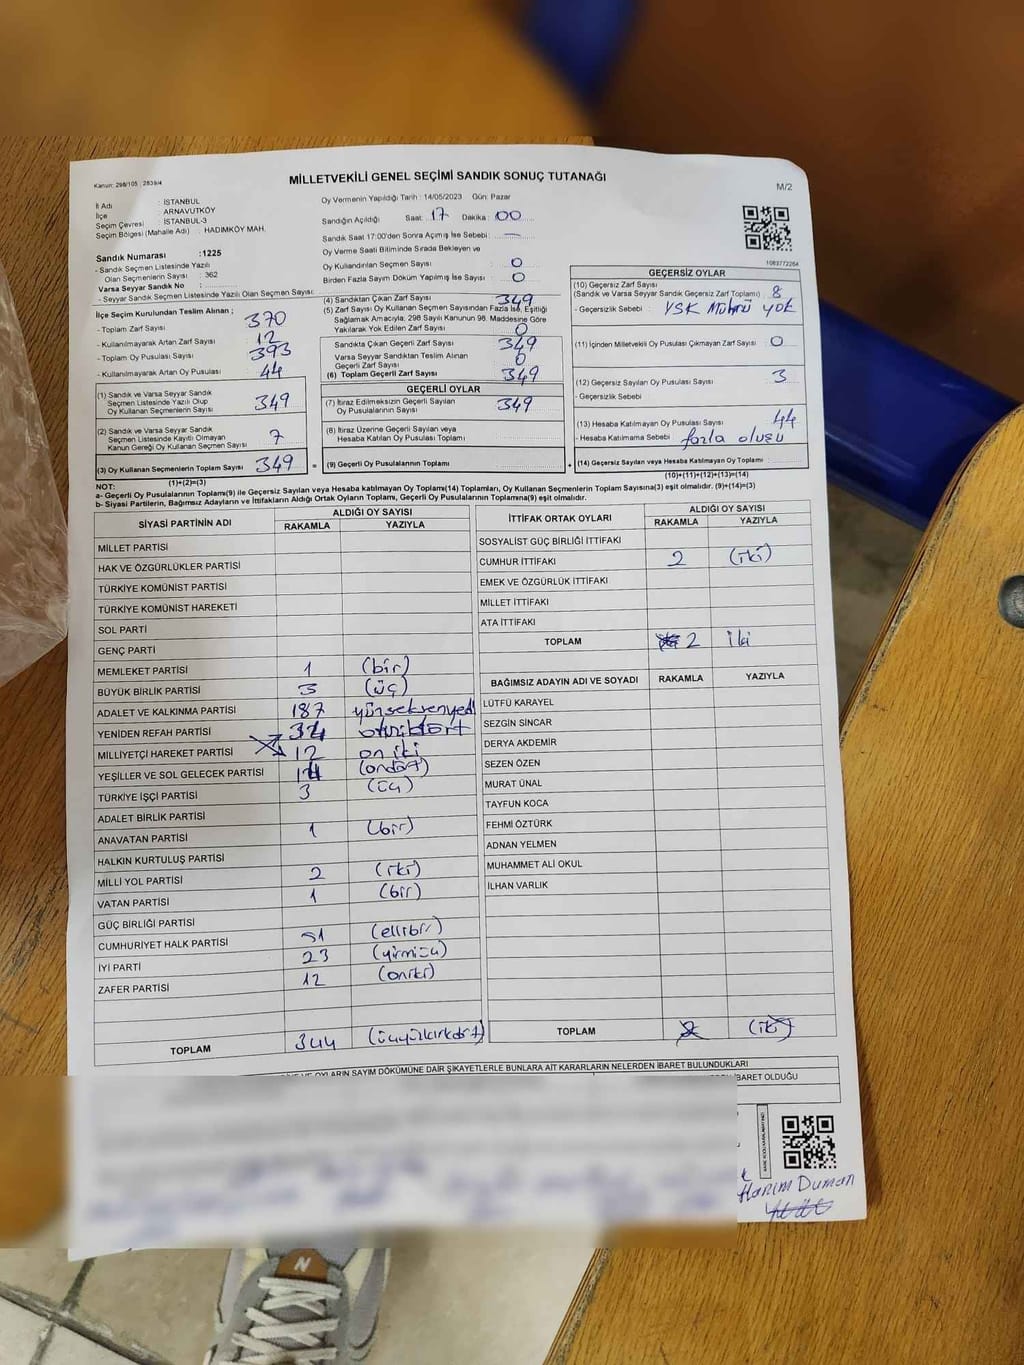 Kanun: 298/105 : 2839/4
MİLLETVEKİLİ GENEL SEÇİMİ SANDIK SONUÇ TUTANAĞI
M/2
İl Adı : İSTANBUL
İlçe : ARNAVUTKÖY
Seçim Çevresi : İSTANBUL-3
Seçim Bölgesi (Mahalle Adı) : HADIMKÖY MAH.
Sandık Numarası :1225
- Sandık Seçmen Listesinde Yazılı
Olan Seçmenlerin Sayısı : 362
Varsa Seyyar Sandık No :
- Seyyar Sandık Seçmen Listesinde Yazılı Olan Seçmen Sayısı:
Oy Vermenin Yapıldığı Tarih : 14/05/2023 Gün: Pazar
Sandığın Açıldığı Saat: 17 Dakika : 00
Sandık Saat 17:00'den Sonra Açılmış İse Sebebi: —
Oy Verme Saati Bitiminde Sırada Bekleyen ve
Oy Kullandırılan Seçmen Sayısı : 0
Birden Fazla Sayım Döküm Yapılmış İse Sayısı : 0
1083772264
İlçe Seçim Kurulundan Teslim Alınan ;
- Toplam Zarf Sayısı 370
- Kullanılmayarak Artan Zarf Sayısı 12
- Toplam Oy Pusulası Sayısı 393
- Kullanılmayarak Artan Oy Pusulası 44
(1) Sandık ve Varsa Seyyar Sandık
Seçmen Listesinde Yazılı Olup
Oy Kullanan Seçmenlerin Sayısı 349
(2) Sandık ve Varsa Seyyar Sandık
Seçmen Listesinde Kayıtlı Olmayan
Kanun Gereği Oy Kullanan Seçmen Sayısı 7
(3) Oy Kullanan Seçmenlerin Toplam Sayısı 349 =
(1)+(2)=(3)
(4) Sandıktan Çıkan Zarf Sayısı 349
(5) Zarf Sayısı Oy Kullanan Seçmen Sayısından Fazla İse, Eşitliği
Sağlamak Amacıyla, 298 Sayılı Kanunun 98. Maddesine Göre
Yakılarak Yok Edilen Zarf Sayısı 0
Sandıkta Çıkan Geçerli Zarf Sayısı 349
Varsa Seyyar Sandıktan Teslim Alınan
Geçerli Zarf Sayısı 0
(6) Toplam Geçerli Zarf Sayısı 349
GEÇERLİ OYLAR
(7) İtiraz Edilmeksizin Geçerli Sayılan
Oy Pusulalarının Sayısı 349
(8) İtiraz Üzerine Geçerli Sayılan veya
Hesaba Katılan Oy Pusulası Toplamı
(9) Geçerli Oy Pusulalarının Toplamı +
GEÇERSİZ OYLAR
(10) Geçersiz Zarf Sayısı
(Sandık ve Varsa Seyyar Sandık Geçersiz Zarf Toplamı) 8
- Geçersizlik Sebebi : YSK Mührü yok
(11) İçinden Milletvekili Oy Pusulası Çıkmayan Zarf Sayısı 0
(12) Geçersiz Sayılan Oy Pusulası Sayısı 3
- Geçersizlik Sebebi
(13) Hesaba Katılmayan Oy Pusulası Sayısı 44
- Hesaba Katılmama Sebebi fazla oluşu
(14) Geçersiz Sayılan veya Hesaba Katılmayan Oy Toplamı
(10)+(11)+(12)+(13)=(14)
NOT:
a- Geçerli Oy Pusulalarının Toplamı(9) ile Geçersiz Sayılan veya Hesaba Katılmayan Oy Toplamı(14) Toplamları, Oy Kullanan Seçmenlerin Toplam Sayısına(3) eşit olmalıdır. (9)+(14)=(3)
b- Siyasi Partilerin, Bağımsız Adayların ve İttifakların Aldığı Ortak Oyların Toplamı, Geçerli Oy Pusulalarının Toplamına(9) eşit olmalıdır.
SİYASİ PARTİNİN ADI ALDIĞI OY SAYISI
RAKAMLA YAZIYLA
MİLLET PARTİSİ
HAK VE ÖZGÜRLÜKLER PARTİSİ
TÜRKİYE KOMÜNİST PARTİSİ
TÜRKİYE KOMÜNİST HAREKETİ
SOL PARTİ
GENÇ PARTİ
MEMLEKET PARTİSİ 1 (bir)
BÜYÜK BİRLİK PARTİSİ 3 (üç)
ADALET VE KALKINMA PARTİSİ 187 yüzseksenyedi
YENİDEN REFAH PARTİSİ 34 otuzdört
MİLLİYETÇİ HAREKET PARTİSİ 12 on iki
YEŞİLLER VE SOL GELECEK PARTİSİ 14 (ondört)
TÜRKİYE İŞÇİ PARTİSİ 3 (üç)
ADALET BİRLİK PARTİSİ
ANAVATAN PARTİSİ 1 (bir)
HALKIN KURTULUŞ PARTİSİ
MİLLİ YOL PARTİSİ 2 (iki)
VATAN PARTİSİ 1 (bir)
GÜÇ BİRLİĞİ PARTİSİ
CUMHURİYET HALK PARTİSİ 51 (ellibir)
İYİ PARTİ 23 (yirmiüç)
ZAFER PARTİSİ 12 (oniki)
TOPLAM 344 (üçyüzkırkdört)
İTTİFAK ORTAK OYLARI ALDIĞI OY SAYISI
RAKAMLA YAZIYLA
SOSYALİST GÜÇ BİRLİĞİ İTTİFAKI
CUMHUR İTTİFAKI 2 (iki)
EMEK VE ÖZGÜRLÜK İTTİFAKI
MİLLET İTTİFAKI
ATA İTTİFAKI
TOPLAM 2 iki
BAĞIMSIZ ADAYIN ADI VE SOYADI RAKAMLA YAZIYLA
LÜTFÜ KARAYEL
SEZGİN SİNCAR
DERYA AKDEMİR
SEZEN ÖZEN
MURAT ÜNAL
TAYFUN KOCA
FEHMİ ÖZTÜRK
ADNAN YELMEN
MUHAMMET ALİ OKUL
İLHAN VARLIK
TOPLAM 2 (iki)
VE OYLARIN SAYIM DÖKÜMÜNE DAİR ŞİKAYETLERLE BUNLARA AİT KARARLARIN NELERDEN İBARET BULUNDUKLARI
İBARET OLDUĞU
Duman